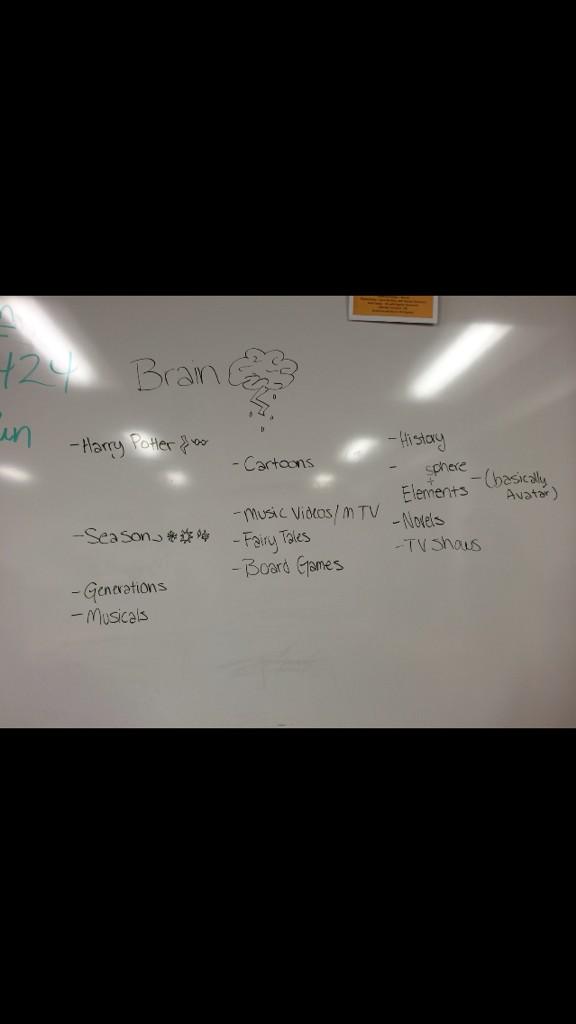 424
Brain
- Harry Potter
- Seasons
- Generations
- Musicals
- Cartoons
- Music Videos/MTV
- Fairy Tales
- Board Games
- History
- sphere
+
Elements - (basically
Avatar)
- Novels
- TV Shows